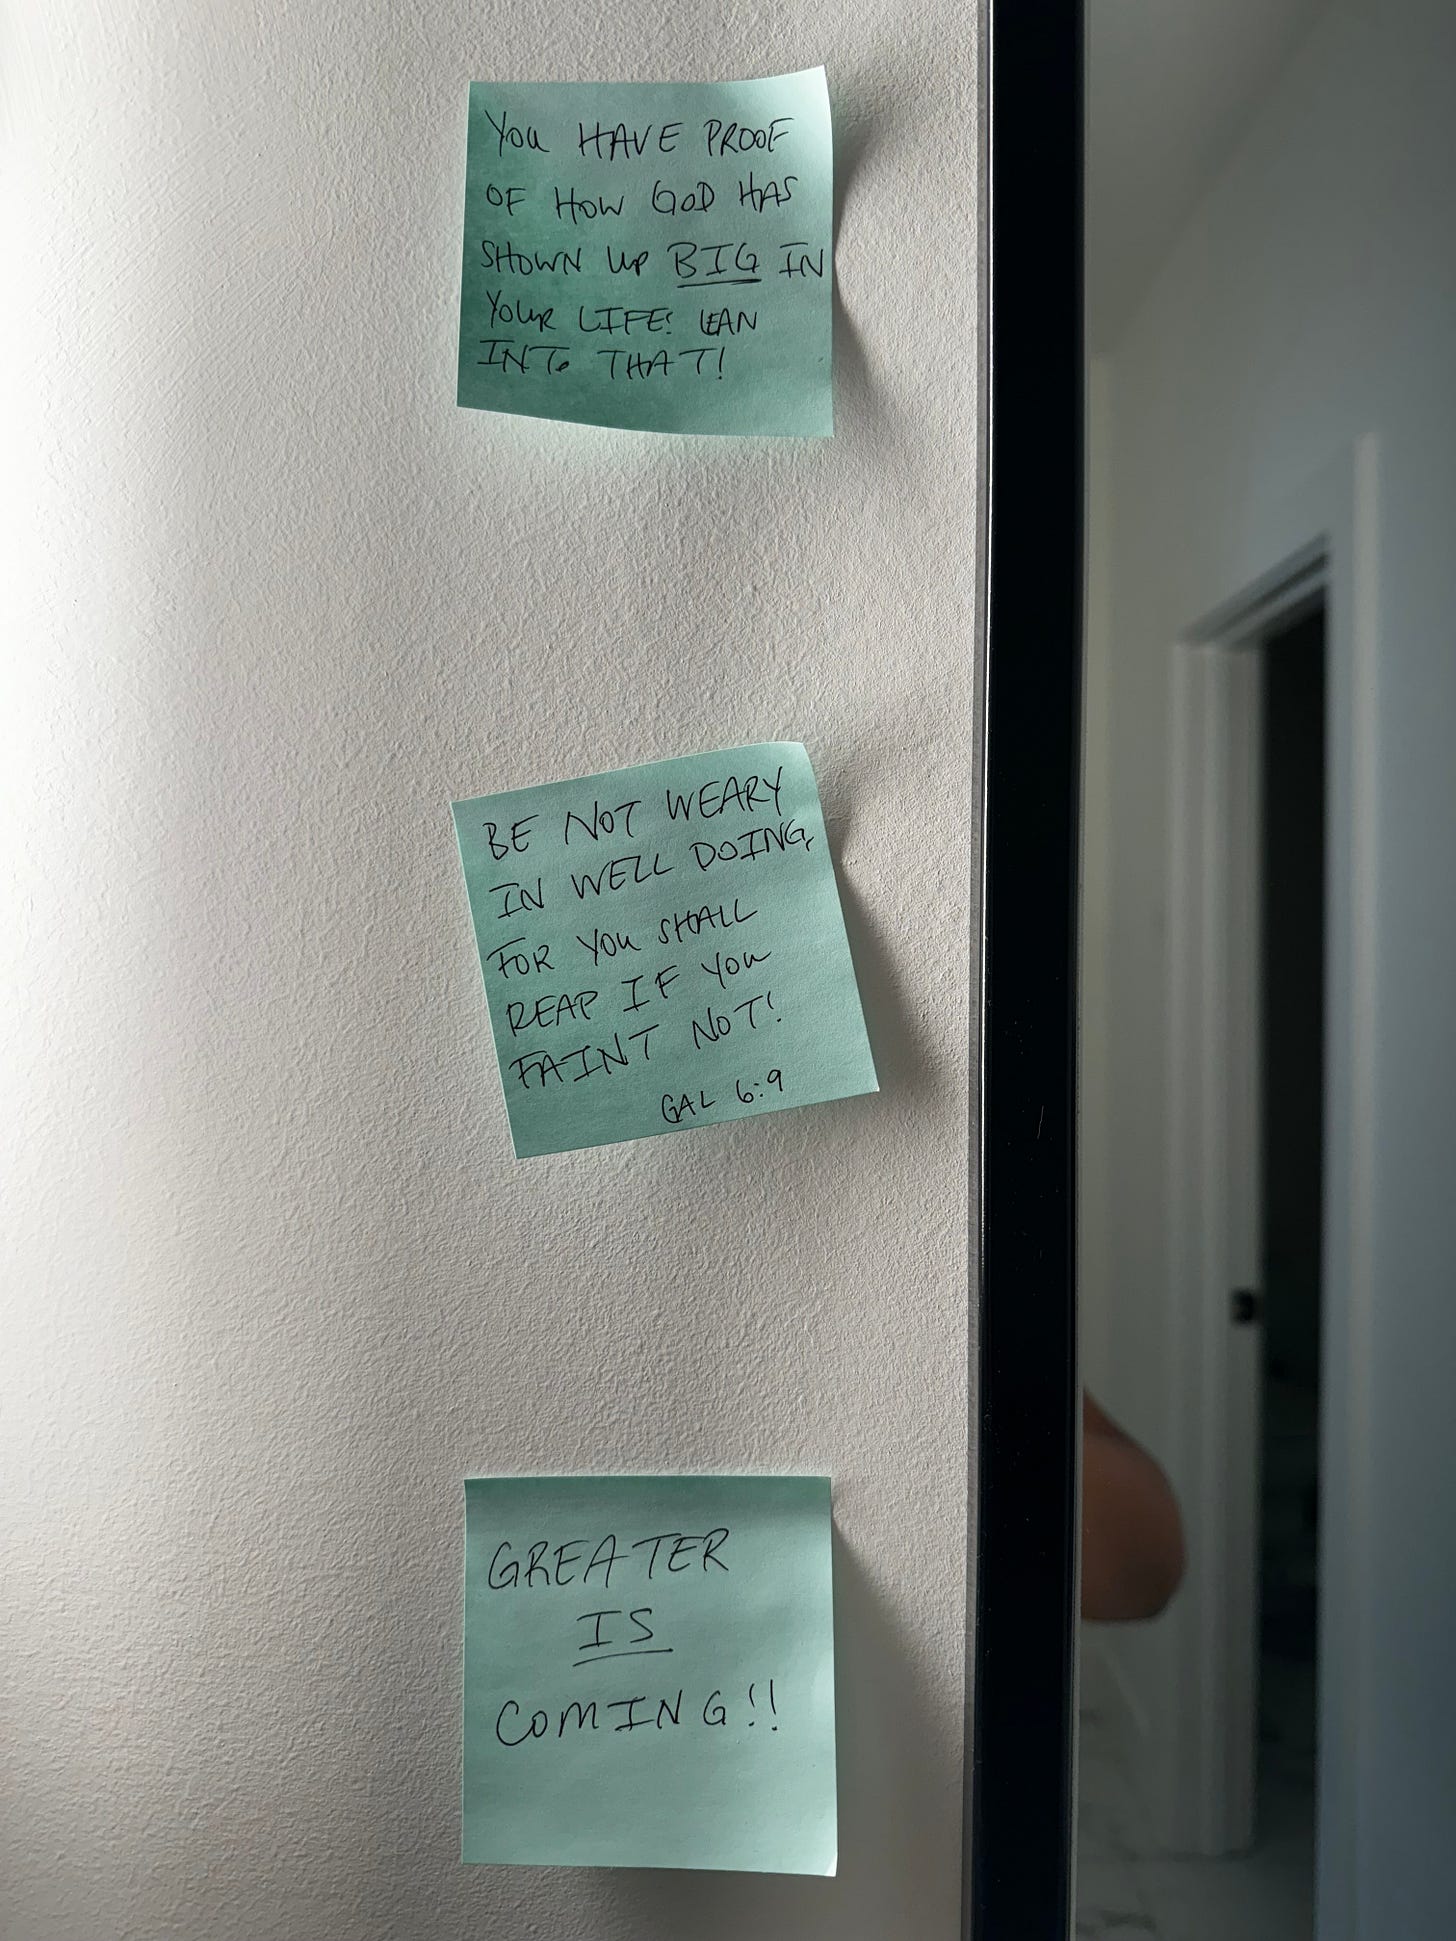 YOU HAVE PROOF
OF HOW GOD HAS
SHOWN UP BIG IN
YOUR LIFE! LEAN
INTO THAT!
BE NOT WEARY
IN WELL DOING,
FOR YOU SHALL
REAP IF YOU
FAINT NOT!
GAL 6:9
GREATER
IS
COMING!!